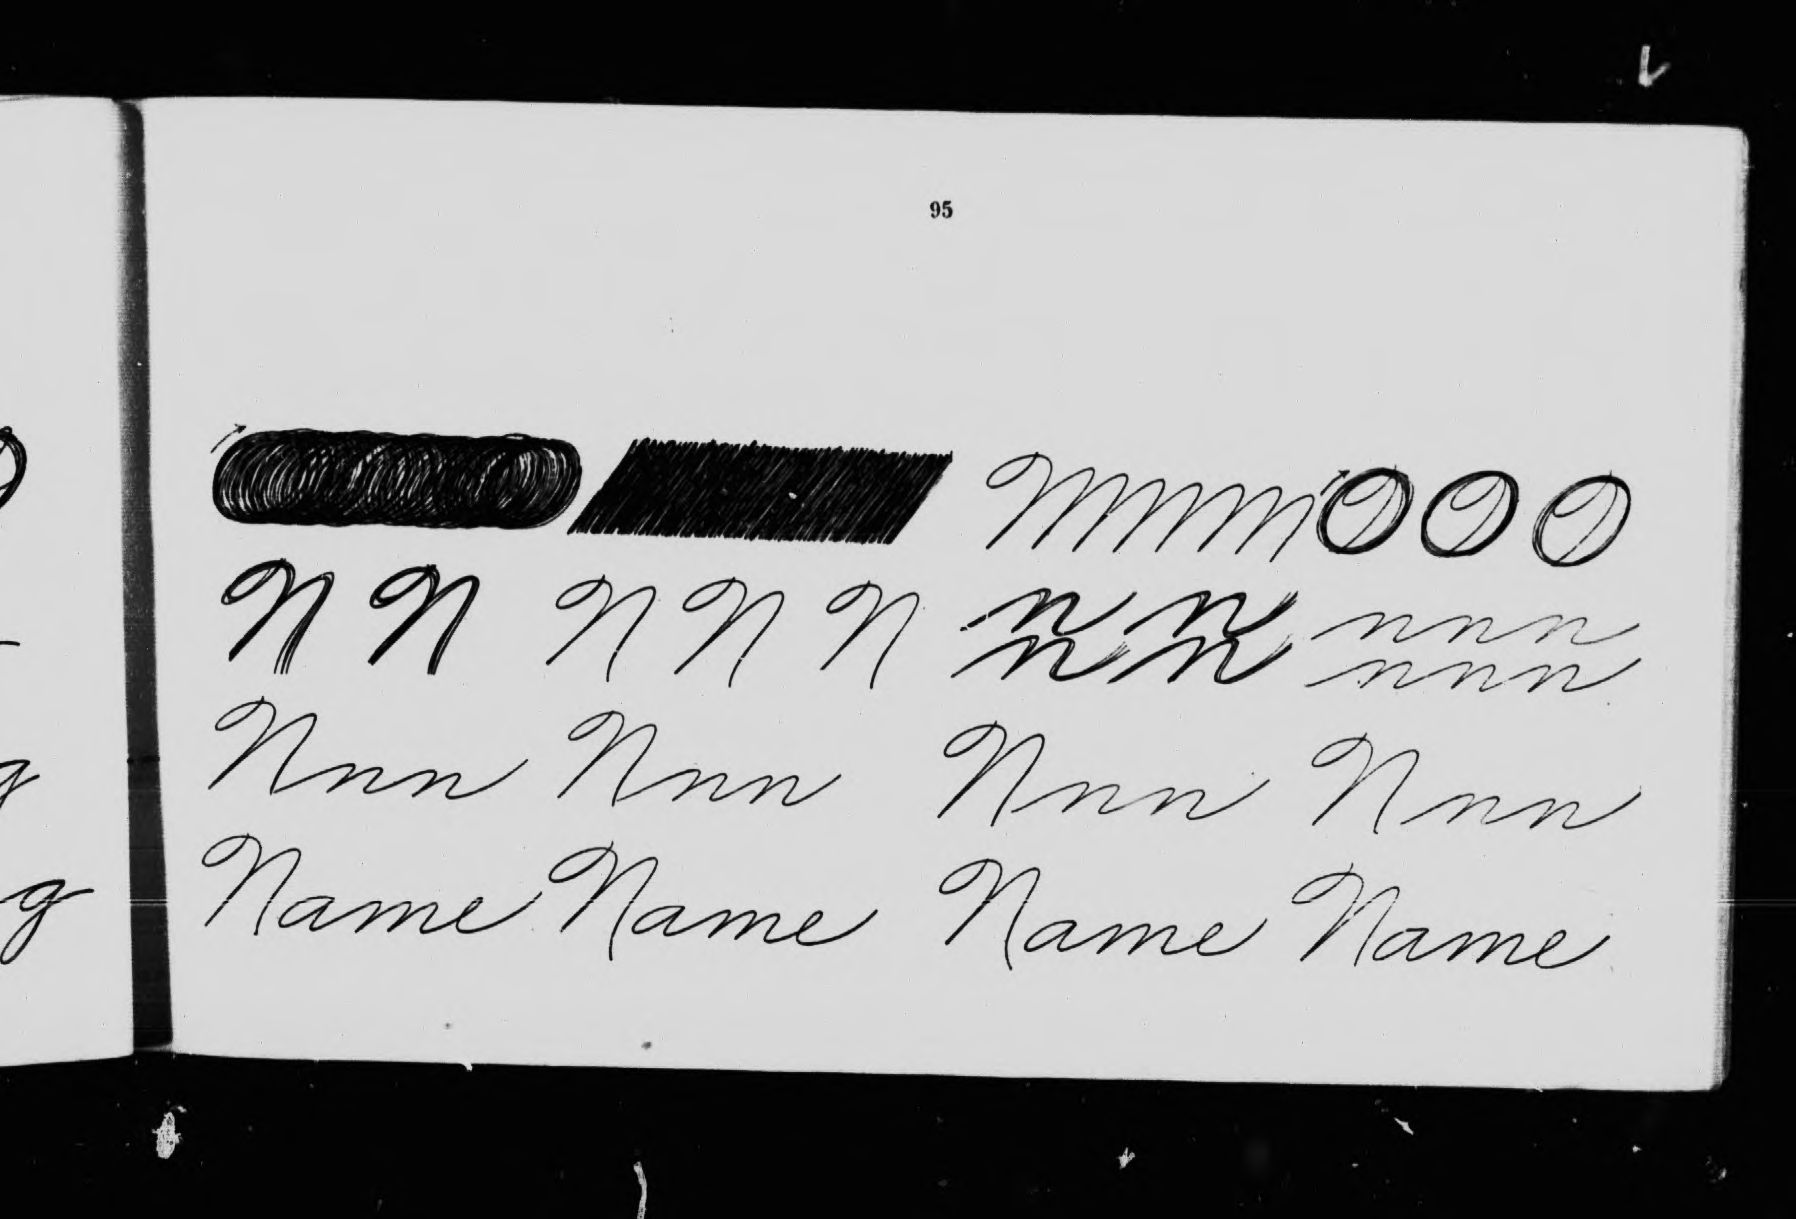 95
N N N N N n n n n n
n n n n n
Nnn Nnn Nnn Nnn
Name Name Name Name